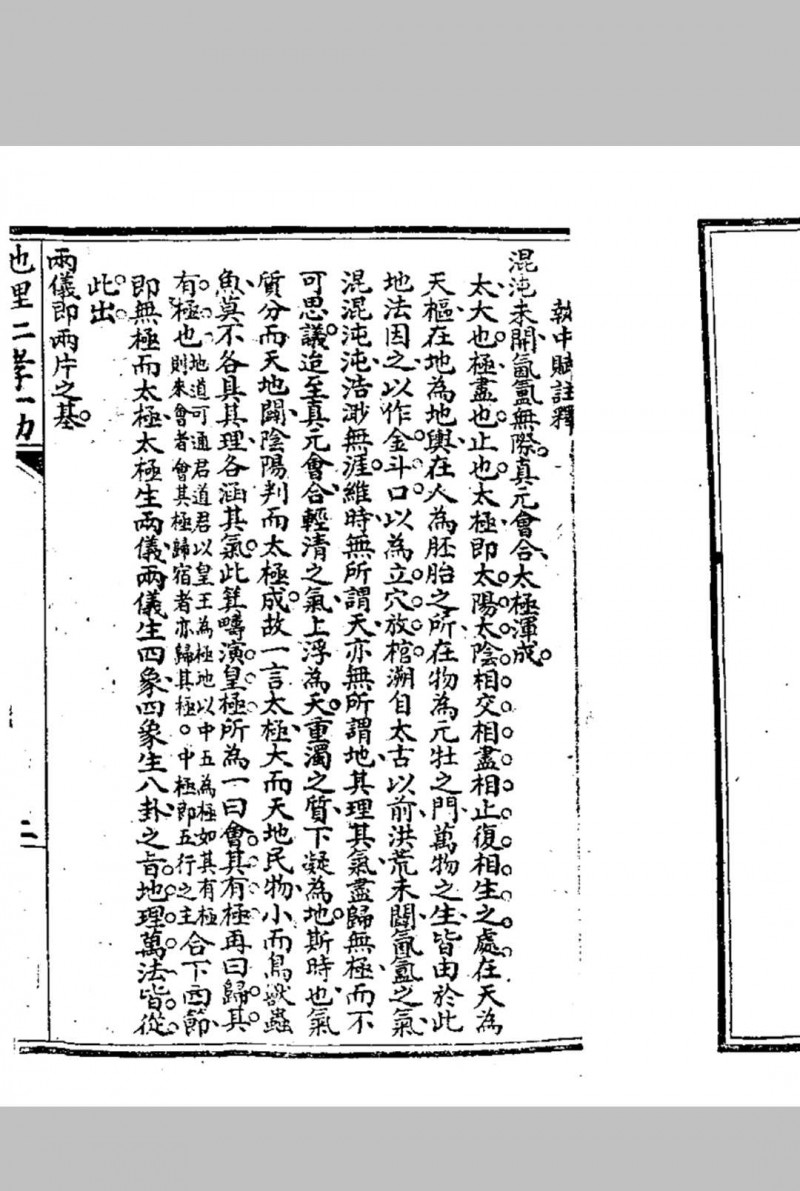 執中賦註釋
混沌未開氤氳無際。真元會合太極渾成。
太大也。極盡也。止也。太極即太陽太陰相交相盡相止復相生之處。在天為
天樞在地為地輿在人為胚胎之所在物為元牡之門萬物之生皆由於此
地法因之以作金斗口以為立穴放棺溯自太古以前洪荒未闢氤氳之氣
混混沌沌浩渺無涯。維時無所謂天亦無所謂地其理其氣盡歸無極而不
可思議。迨至真元會合輕清之氣上浮為天。重濁之質下凝為地。斯時也氣
質分而天地闢陰陽判而太極成。故一言太極大而天地民物小而鳥獸蟲
魚莫不各具其理各涵其氣。此箕疇演皇極所為一曰會其有極再曰歸其
有極也地道可通君道君以皇王為極地以中五為極如其有極
則來會者會其極歸宿者亦歸其極。中極即五行之主合下四節
即無極而太極太極生兩儀兩儀生四象四象生八卦之旨。地理萬法皆從
此出。
兩儀即兩片之基。
地理二孝一力
二